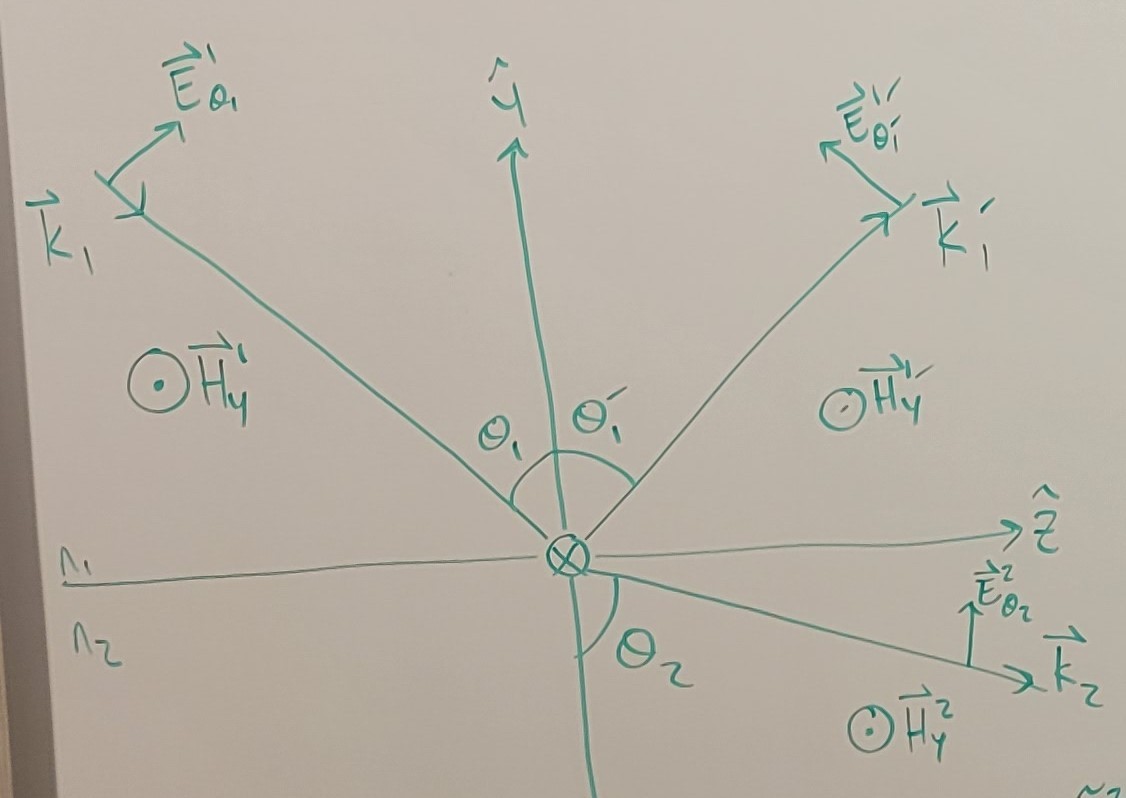 E⃗¹θ₁
ŷ
E⃗¹′θ₁′
k⃗₁
k⃗₁′
H⃗¹y
H⃗¹′y
θ₁
θ₁′
n₁
ẑ
n₂
θ₂
E⃗²θ₂
k⃗₂
H⃗²y